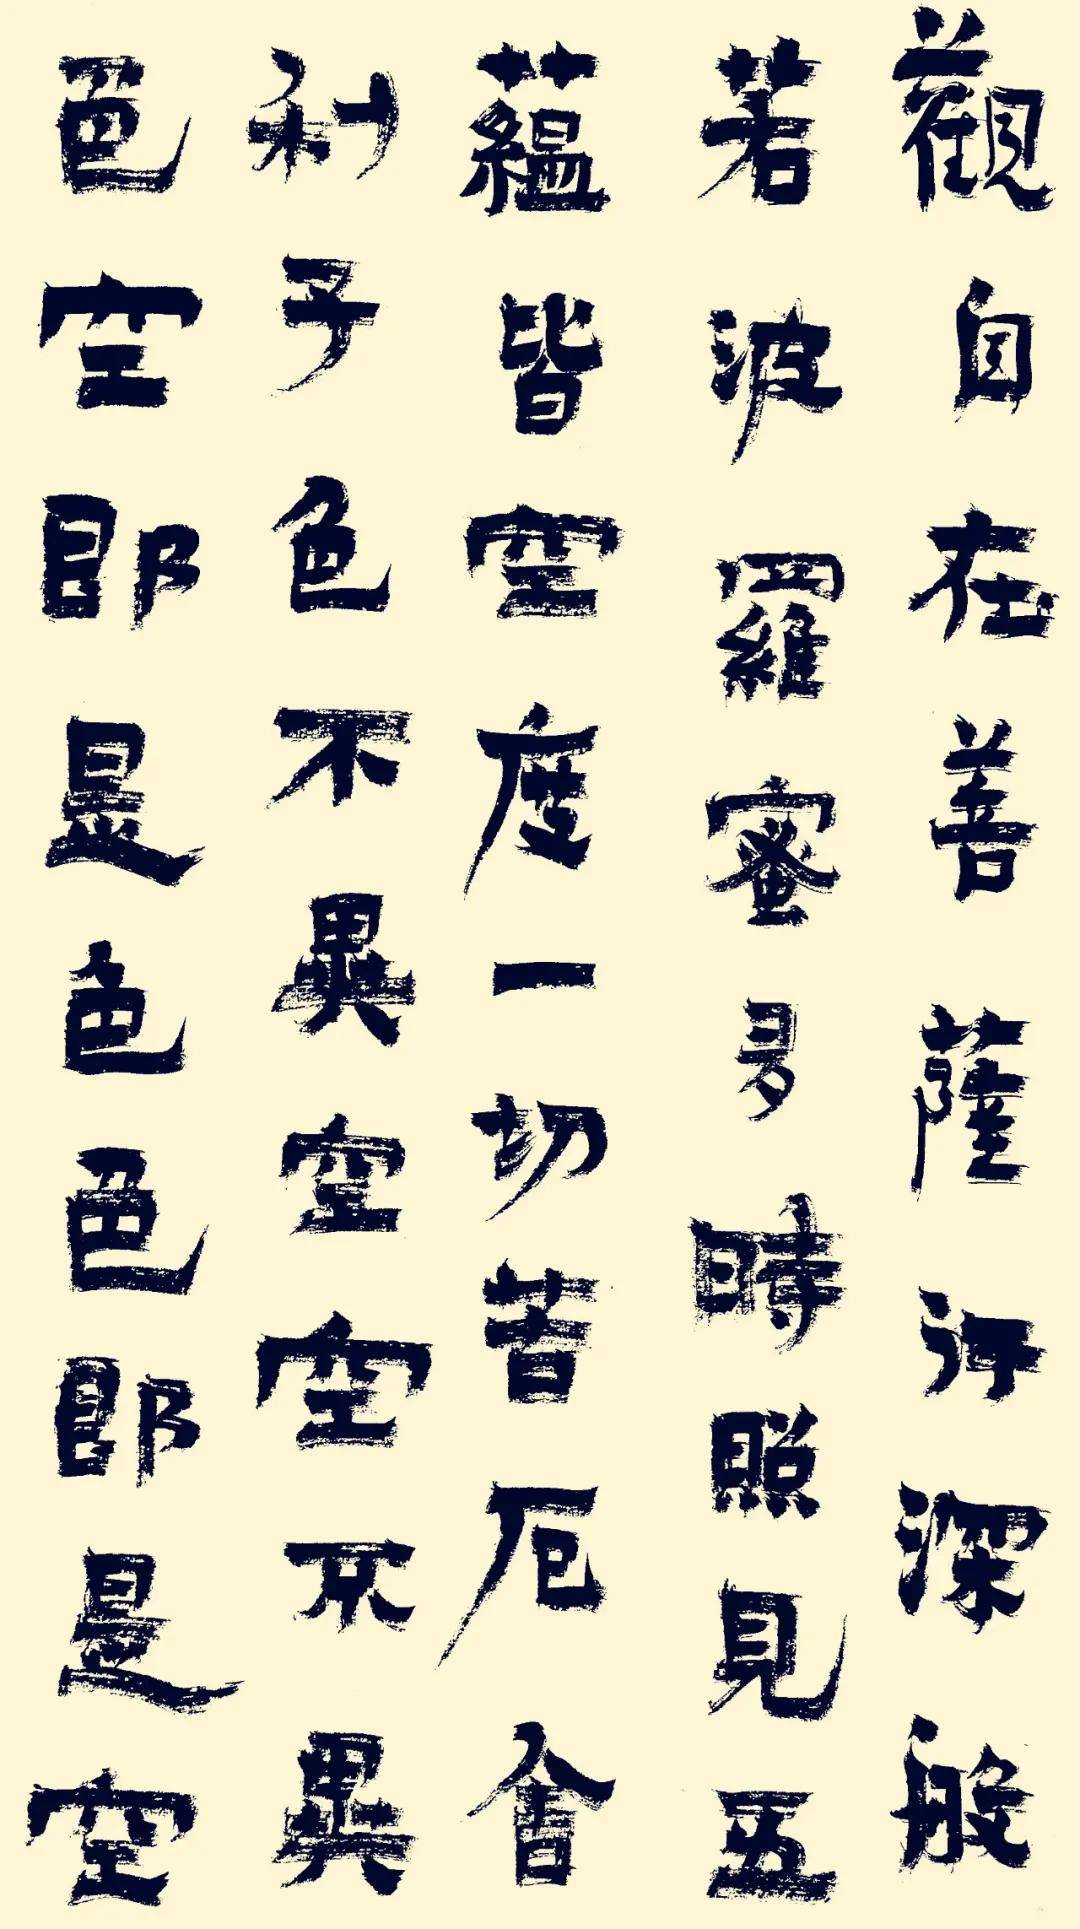 觀自在善薩行深般
若波羅蜜多時照見五
蘊皆空度一切苦厄舍
利子色不異空空不異
色空即是色色即是空